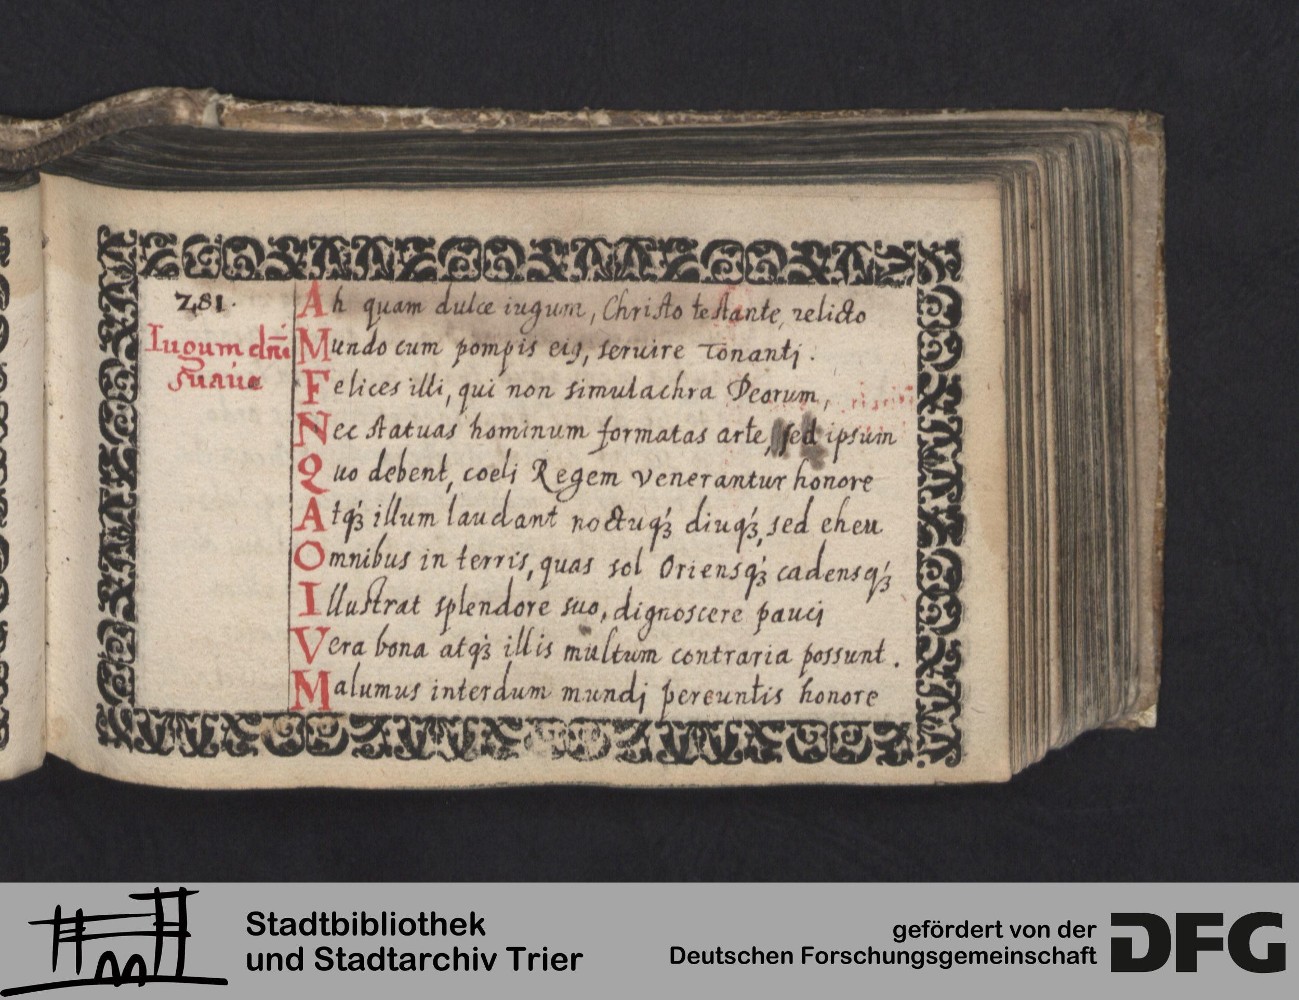 281.
Iugum dn̄i
suaue
Ah quam dulce iugum, Christo testante, relicto
Mundo cum pompis eiꝰ, seruire Tonantj.
Felices illi, qui non simulachra Deorum,
Nec statuas hominum formatas arte, sed ipsum
Quo debent, coelj Regem venerantur honore
Atqȝ illum laudant noctuqȝ diuqȝ, sed eheu
Omnibus in terris, quas sol Oriensqȝ cadensqȝ
Illustrat splendore suo, dignoscere paucj
Vera bona atqȝ illis multum contraria possunt.
Malumus interdum mundj pereuntis honore
Stadtbibliothek
und Stadtarchiv Trier
gefördert von der
Deutschen Forschungsgemeinschaft
DFG